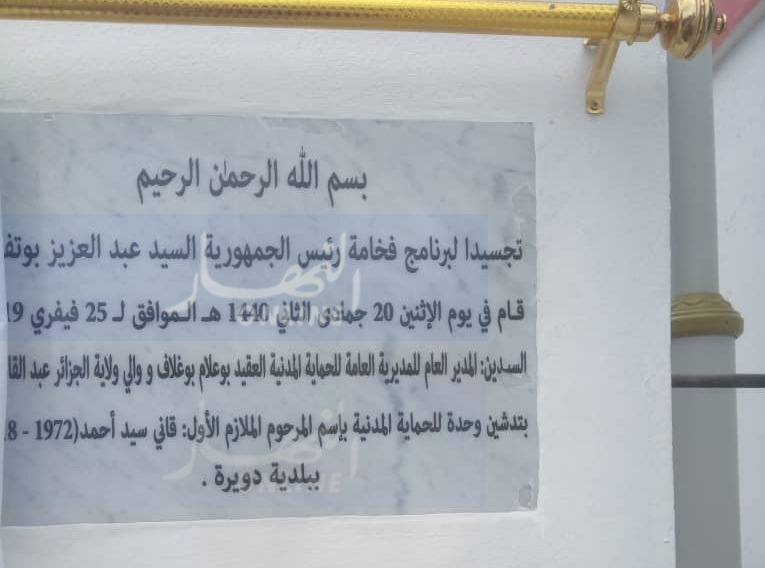 بسم الله الرحمان الرحيم
تجسيدا لبرنامج فخامة رئيس الجمهورية السيد عبد العزيز بوتف
قام في يوم الإثنين 20 جمادى الثاني 1440 هـ الموافق لـ 25 فيفري 19
السيدين: المدير العام للمديرية العامة للحماية المدنية العقيد بوعلام بوغلاف و والي ولاية الجزائر عبد القا
بتدشين وحدة للحماية المدنية بإسم المرحوم الملازم الأول: قاني سيد أحمد(1972 - 8
ببلدية دويرة .
النهار
ONLINE
النهار
ONLINE